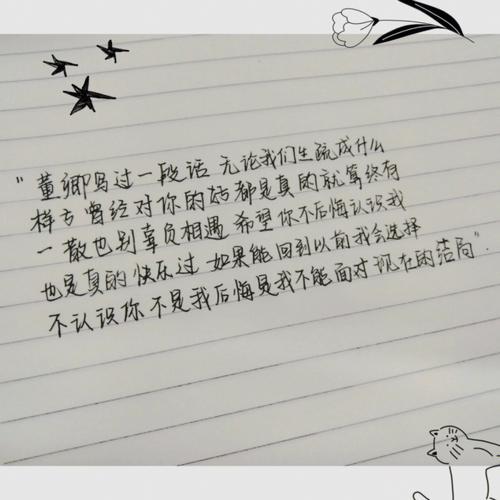 "董卿写过一段话 无论我们生疏成什么
样子 曾经对你的好都是真的就算终有
一散也别辜负相遇 希望你不后悔认识我
也是真的快乐过 如果能回到以前我会选择
不认识你 不是我后悔是我不能面对现在的结局"